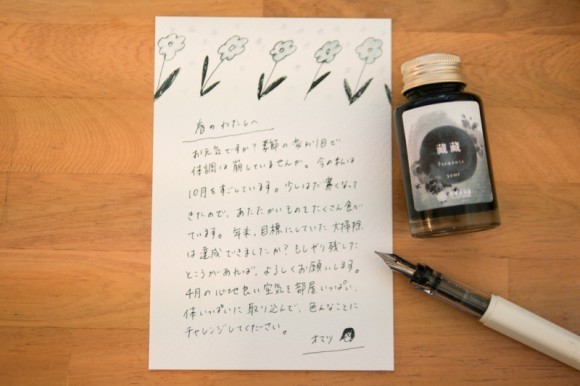 春のわたしへ
お元気ですか？季節の変わり目で
体調は崩していませんか。今の私は
10月をすごしています。少しはだ寒くなって
きたので、あたたかいものをたくさん食べ
ています。年末、目標にしていた大掃除
は達成できましたか？もしやり残した
ところがあれば、よろしくお願いします。
4月の心地良い空気を部屋いっぱい、
体いっぱいに取り込んで、色んなことに
チャレンジしてください。
オマツ
藏藏